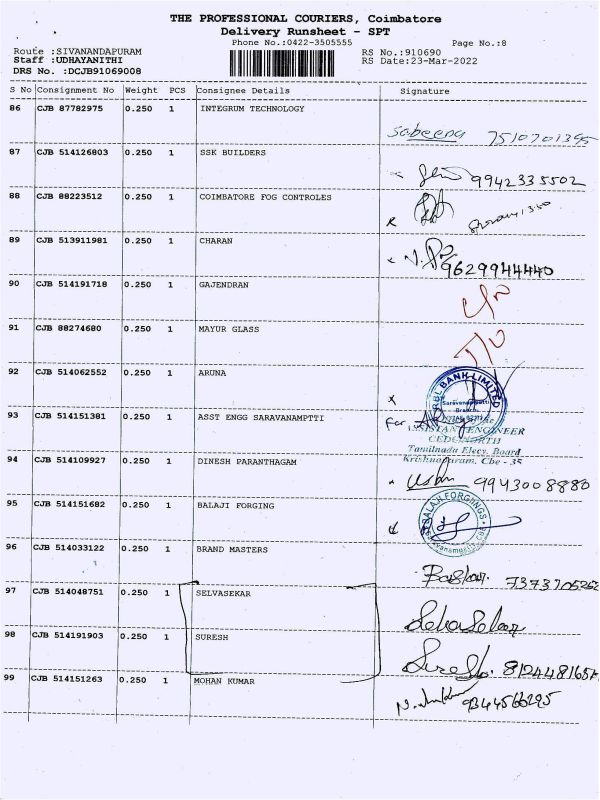 THE PROFESSIONAL COURIERS, Coimbatore
Delivery Runsheet - SPT
Phone No.:0422-3505555
Page No.:8
Route :SIVANANDAPURAM
RS No.:910690
Staff :UDHAYANITHI
RS Date:23-Mar-2022
DRS No. :DCJB91069008
S No Consignment No Weight PCS Consignee Details Signature
86 CJB 87782975 0.250 1 INTEGRUM TECHNOLOGY
Sabeena 7510701395
87 CJB 514126803 0.250 1 SSK BUILDERS
9942335502
88 CJB 88223512 0.250 1 COIMBATORE FOG CONTROLES
89 CJB 513911981 0.250 1 CHARAN
9629944440
90 CJB 514191718 0.250 1 GAJENDRAN
91 CJB 88274680 0.250 1 MAYUR GLASS
92 CJB 514062552 0.250 1 ARUNA
RBL BANK LIMITED
Saravanampatti
Branch
93 CJB 514151381 0.250 1 ASST ENGG SARAVANAMPTTI
For
ASSISTANT ENGINEER
CEDC/NORTH
Tamilnadu Elecy. Board
Krishnapuram, Cbe - 35
94 CJB 514109927 0.250 1 DINESH PARANTHAGAM
Usha 9943008880
95 CJB 514151682 0.250 1 BALAJI FORGING
BALAJI FORGINGS
96 CJB 514033122 0.250 1 BRAND MASTERS
Baskar. 7373705262
97 CJB 514048751 0.250 1 SELVASEKAR
98 CJB 514191903 0.250 1 SURESH
Suresh.
99 CJB 514151263 0.250 1 MOHAN KUMAR
9344566295